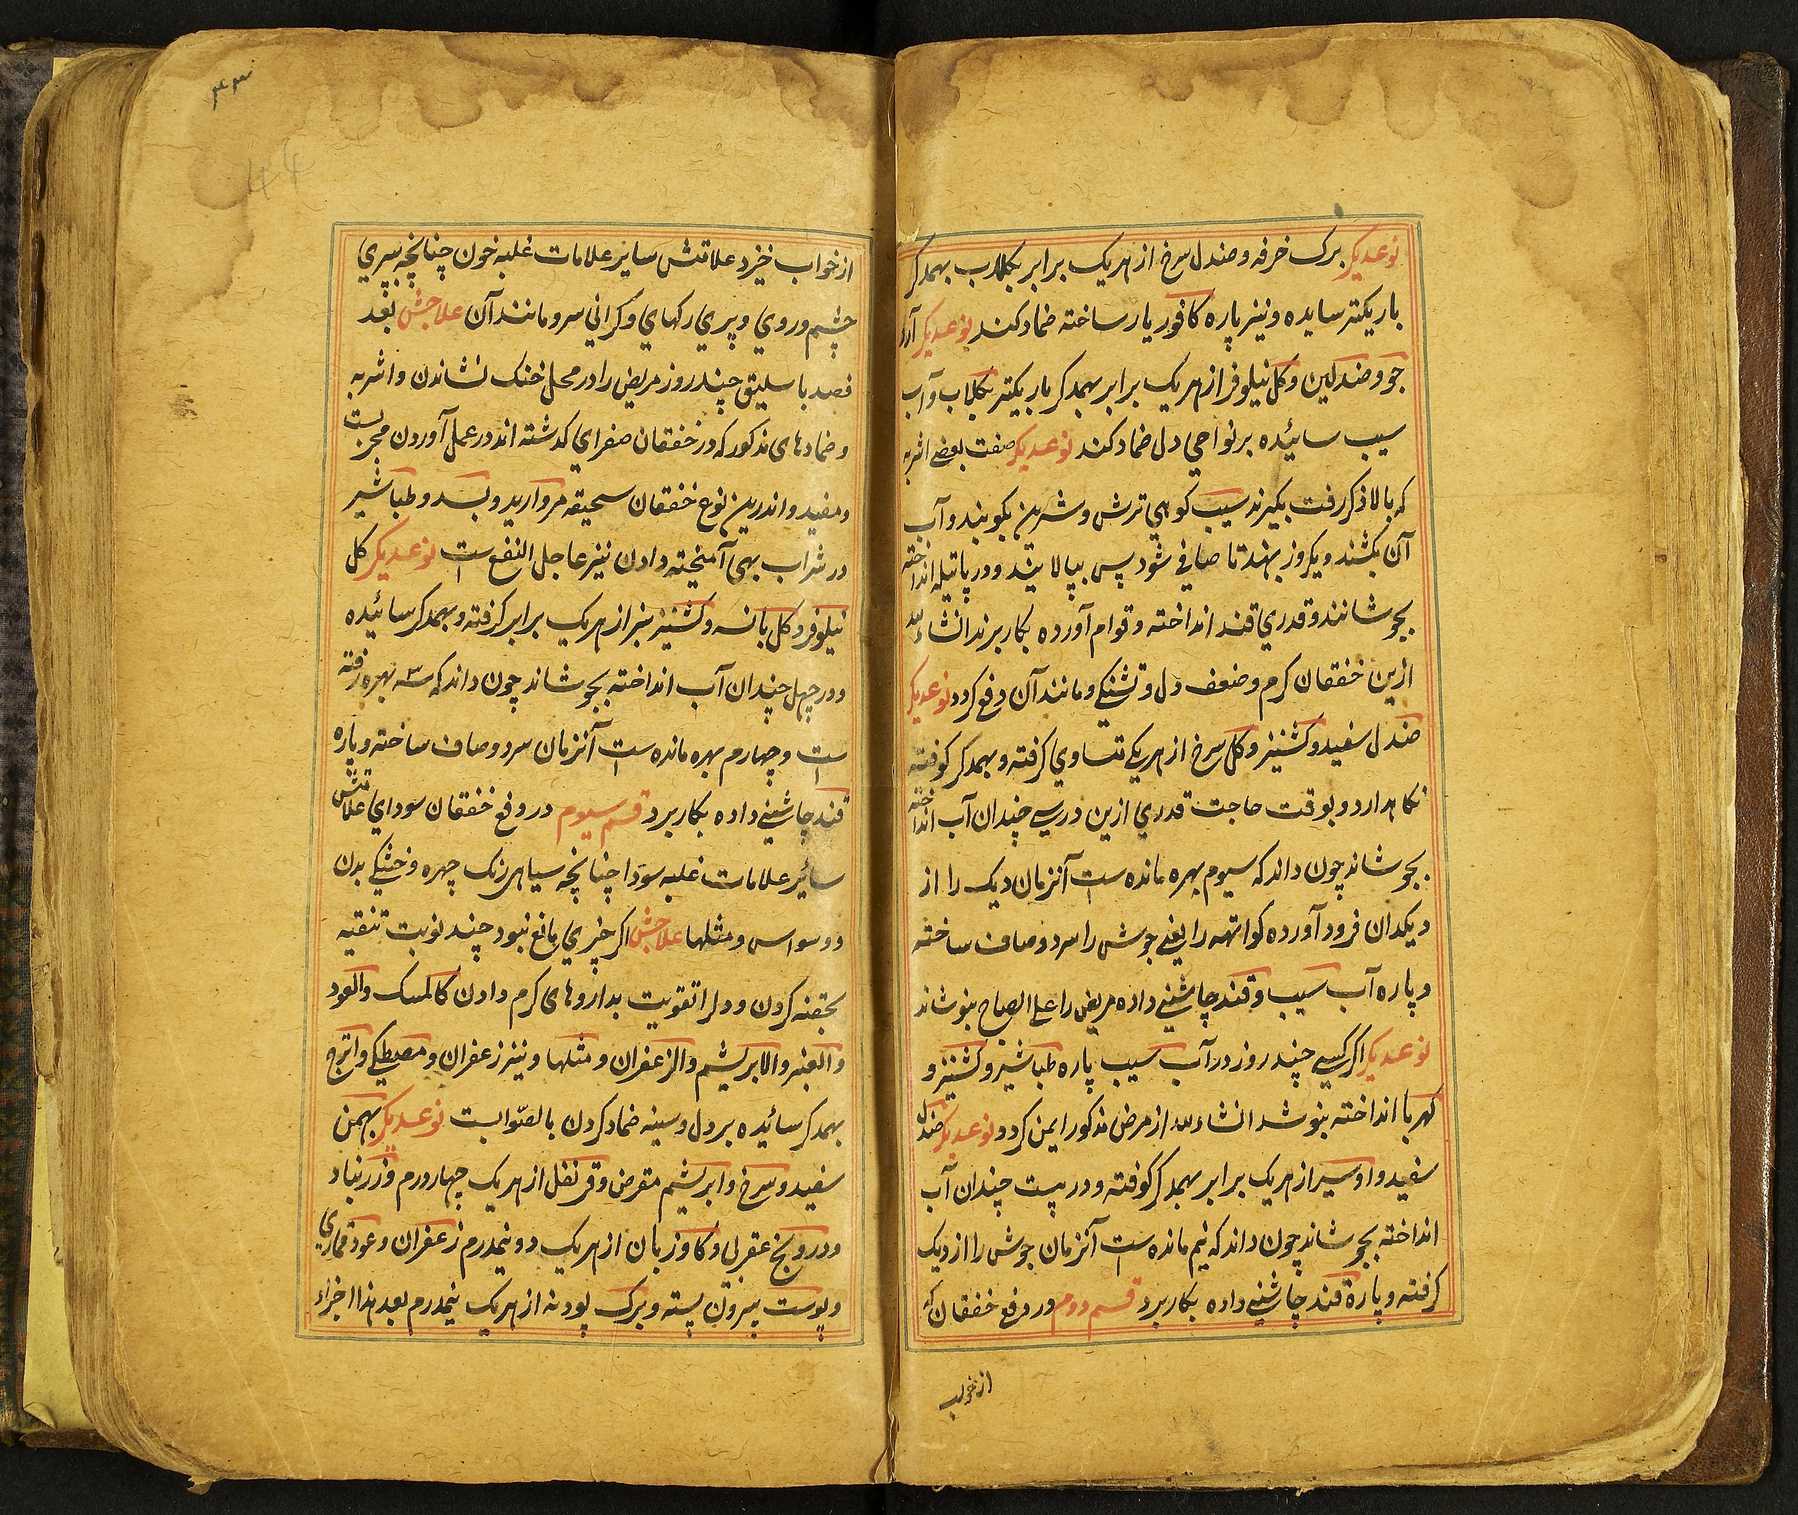 نوعدیکر برک خرفه و صندل سرخ از هریک برابر بکلاب بهمدکر
باریکتر سایده و نیز پاره کافور یار ساخته ضماد کند نوعدیکر آرد
جو و صندلین و کل نیلوفر از هریک برابر بهمدکر باریکتر بکلاب و آب
سیب سائیده بر نواحی دل ضماد کند نوعدیکر صفت بعضے اشربه
که بالا ذکر رفت بکیرند سیب کوهی ترش و شیرین بکوبند و آب
آن بکشند و یکروز بنهند تا صافی شود پس بپالایند و در پاتیله انداخته
بجوشانند و قدری قند انداخته و قوام آورده بکار برند انشاءالله
ازین خفقان کرم و ضعف دل و تشنکے و مانند آن دفع کردد نوعدیکر
صندل سفید و کشنیز و کل سرخ از هریکے متساوی کرفته و بهمدکر کوفته
نکاهدارد و بوقت حاجت قدری ازین در سے چندان آب انداخته
بجوشاند چون داند که سیوم بهره مانده است آنزمان دیک را از
دیکدان فرود آورده کواتهه را یعنے جوش را سرد و صاف ساخته
و پاره آب سیب و قند چاشنے داده مریض را علے الصباح بنوشاند
نوعدیکر اکر کسے چند روز در آب سیب پاره طباشیر و کشنیز و
کهربا انداخته بنوشد انشاءلله از مرض مذکور ایمن کردد نوعدیکر صندل
سفید و اوسیر از هریک برابر بهمدکر کوفته و در بیست چندان آب
انداخته بجوشاند چون داند که نیم مانده است آنزمان جوش را از دیک
کرفته و پارهٔ قند چاشنے داده بکار برد قسم دوم در دفع خفقان که
از خواب
۴۳
44
از خواب خیزد علامتش سایر علامات غلبه خون چنانچه بسپری
چشم و روی و پری رکهای و کرانی سر و مانند آن علاجش بعد
فصد باسلیق چند روز مریض را در محل خنک نشاندن و اشربه
و ضمادهای مذکور که در خفقان صفرای کذشته اند در عمل آوردن مجربست
و مفید و اندرین نوع خفقان سحیقه مروارید و بسد و طباشیر
در شراب بهی آمیخته دادن نیز عاجل النفع است نوعدیکر کل
نیلوفر و کل بانسه و کشنیز سبز از هریک برابر کرفته و بهمدکر سائیده
و در چهل چندان آب انداخته بجوشاند چون داند که سه بهره رفته
است و چهارم بهره مانده است آنزمان سرد و صاف ساخته و پاره
قند چاشنے داده بکار برد قسم سیوم در دفع خفقان سودای علامتش
سائیر علامات غلبه سودا چنانچه سیاهی رنک چهره و خشکے بدن
و وسواس و مثلها علاجش اکر چیزی مانع نبود چند نوبت تنقیه
بحقنه کردن و دل را تقویت بداروهای کرم دادن کالمسک والعود
والعنبر والابریشم والزعفران و مثلها و نیز زعفران و مصطکے و اترج
بهمدکر سائیده بر دل و سینه ضماد کردن بالصوابست نوعدیکر بهمن
سفید و سرخ و ابریشم مقرض و قرنفل از هریک چهار درم و زرنباد
و درونج عقربی و کاوزبان از هریک دو نیمدرم زعفران و عود قماری
و پوست بیرون پسته و برک پودنه از هریک نیمدرم بعد هذا اجزاء